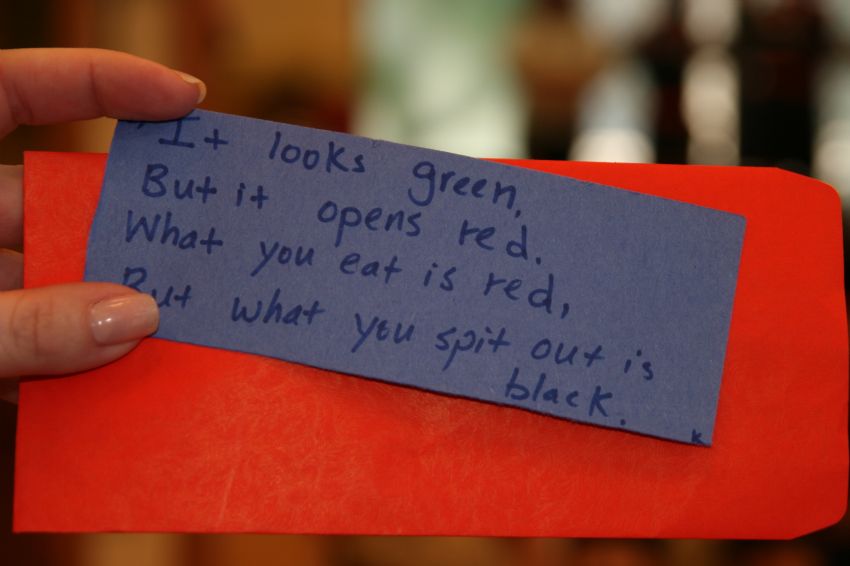 It looks green,
But it opens red.
What you eat is red,
But what you spit out is
black.
K